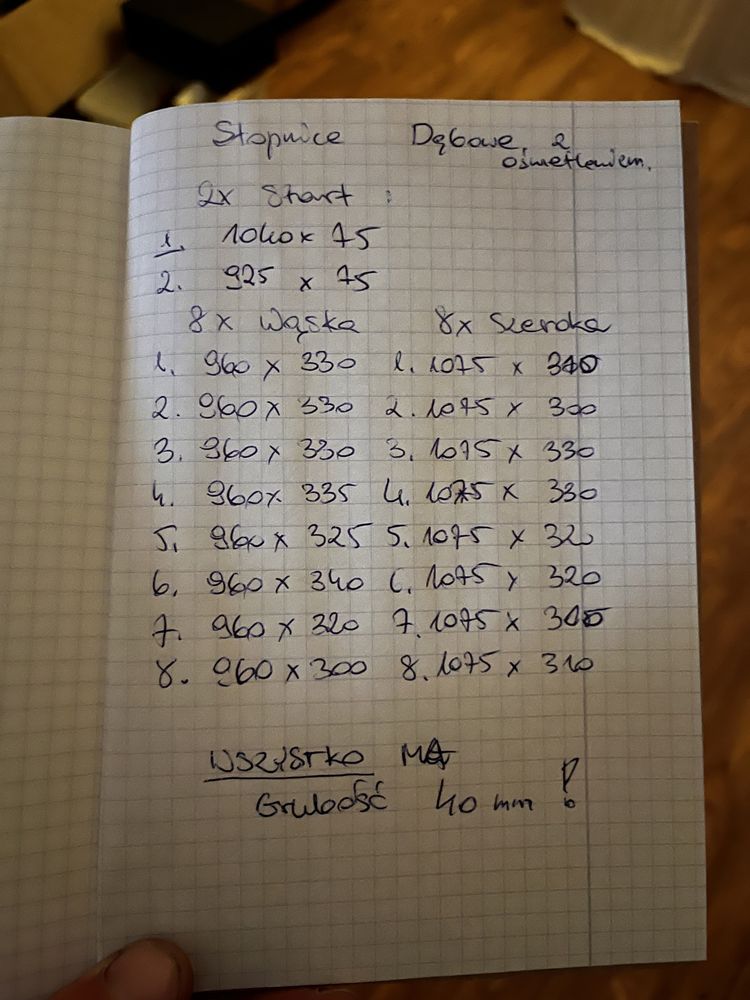 Stopnice Dębowe, z
oświetleniem.
2x Start :
1. 1040 x 75
2. 925 x 75
8x Wąska 8x Szeroka
1. 960 x 330 1. 1075 x 340
2. 960 x 330 2. 1075 x 300
3. 960 x 330 3. 1075 x 330
4. 960 x 335 4. 1075 x 330
5. 960 x 325 5. 1075 x 320
6. 960 x 340 6. 1075 x 320
7. 960 x 320 7. 1075 x
8. 960 x 300 8. 1075 x 310
WSZYSTKO MA
Grubość 40 mm !